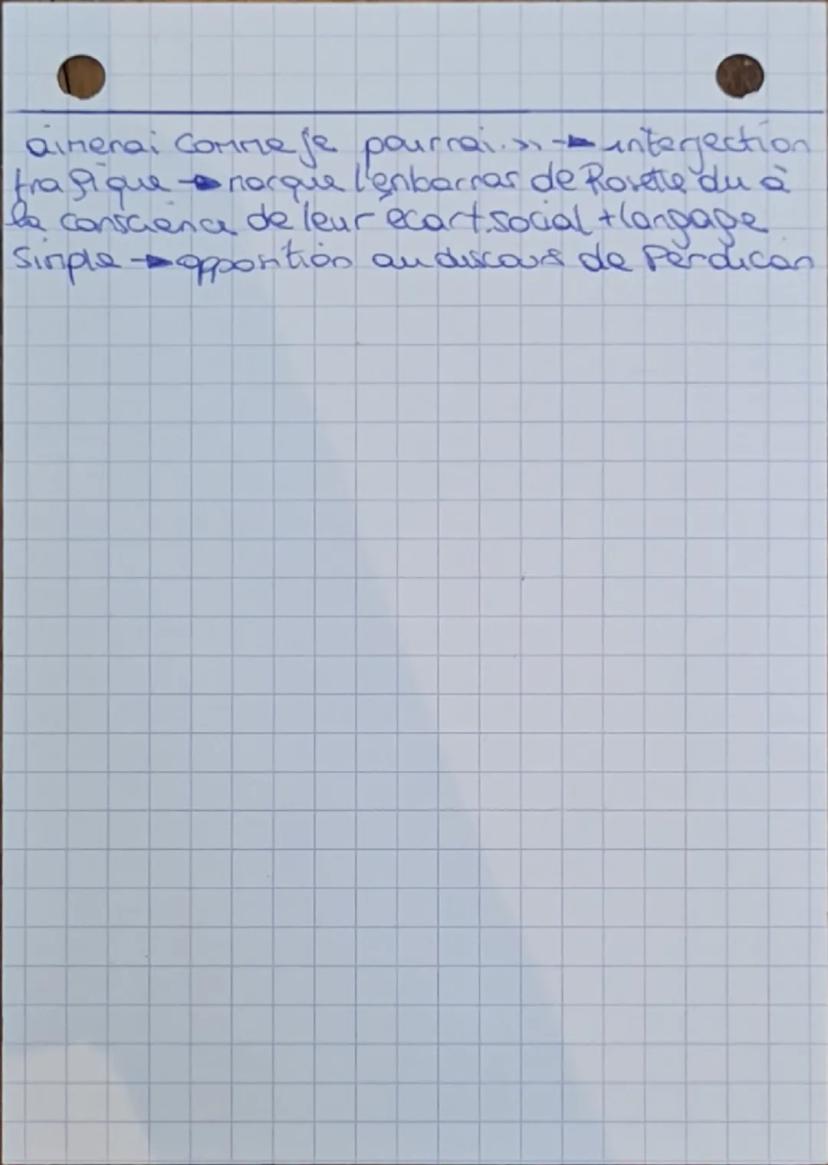 aimerai comme je pourrai. » → interjection
tragique → marque l'embarras de Rosette du à
la conscience de leur écart social + langage
simple → opposition au discours de Perdican